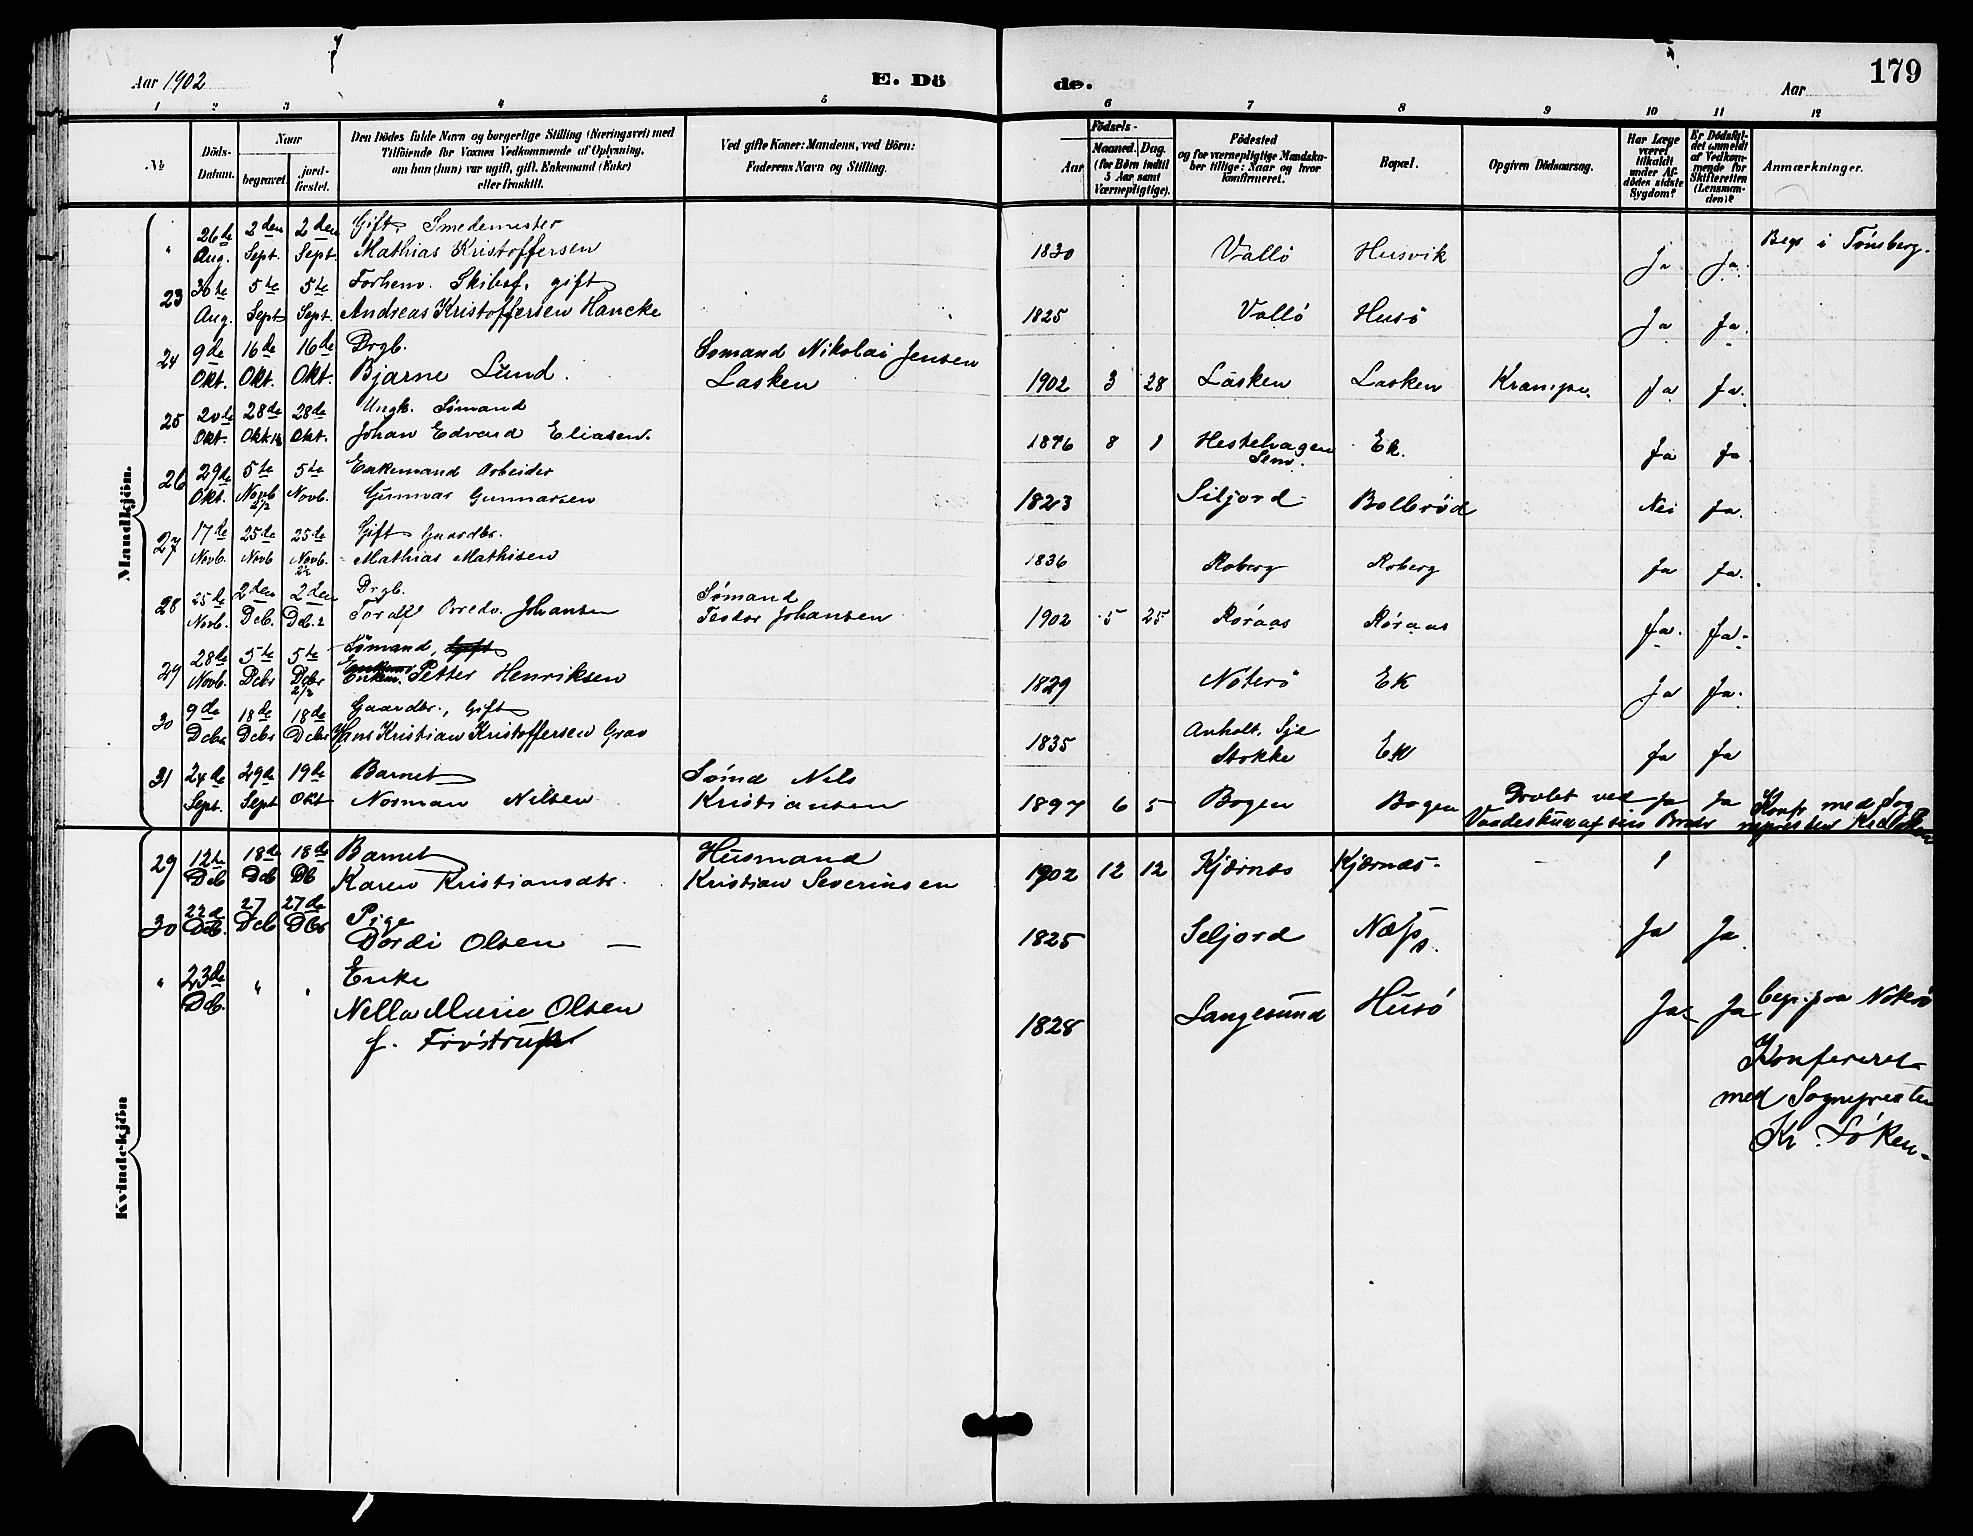 Aar 1902 E. Dö de. Aar 179
1 2 3 4 5 6 7 8 9 10 11 12
№ Döds-Datum. Naar begravet. jord-fæstet. Den Dödes fulde Navn og borgerlige Stilling (Næringsvei) med Tilföiende for Voxnes Vedkommende af Oplysning, om han (hun) var ugift, gift, Enkemand (Enke) eller fraskilt. Ved gifte Koner: Mandens, ved Börn: Faderens Navn og Stilling. Födsels- Aar Maaned. Dag. (for Börn indtil 5 Aar samt Værnepligtige). Födested og for værnepligtige Mandska-ber tillige: Naar og hvor konfirmeret. Bopæl. Opgiven Dödsaarsag. Har Læge været tilkaldt under Af-dödes sidste Sygdom? Er Dödsfal-det anmeldt af Vedkom-mende for Skifteretten (Lensman-den)? Anmærkninger.
Mandkjön.
" 26de 2den 2den Gift, Smedemester
Aug. Sept. Sept. Mathias Kristoffersen 1830 Vallö Husvik Ja Ja. Begr i Tönsberg.
23 30te 5te 5te Forhenv. Skibsf. gift
Aug. Sept Sept. Andreas Kristoffersen Hancke 1825 Vallö Husö Ja Ja.
24 9de 16de 16de Drgb. Sömand Nikolai Jensen
Okt. Okt. Okt. Bjarne Lund. Lasken 1902 3 28 Lasken Lasken Krampe. Ja Ja.
25 20de 28de 28de Ungk. Sömand
Okt. Okt Okt. Johan Edvard Eliasen. 1876 8 1 Hestehagen Sem. Ek. Ja Ja.
26 29de 5te 5te Enkemand Arbeider
Okt. Novb Novb. Gunnar Gunnarsen 1823 Siljord Bolbröd Nei Ja.
27 17de 25de 25de Gift Gaardbr.
Novb. Novb Novb. Mathias Mathisen 1836 Roberg Roberg Ja Ja.
28 25de 2den 2den Drgb. Sömand
Novb. Dcb. Dcb. Toralf Bredo. Johansen Teodor Johansen 1902 5 25 Röraas Röraas Ja. Ja.
29 28de 5te 5te Sömand, Gift
Novb. Dcbr Dcbr Enkem. Petter Henriksen 1829 Nöterö Ek Ja Ja.
30 9de 18de 18de Gaardbr., Gift
Dcbr Dcbr Dcbr Hans Kristian Kristoffersen Grav 1835 Anholt, Sje Stokke Ek Ja Ja
31 24de 29de 19de Barnet Sömd Nils
Sept. Sept Okt Norman Nilsen Kristiansen 1897 6 5 Bogen Bogen Ja Ja
Kvindekjön
29 12te 18de 18de Barnet Husmand
Dcb Dcb Db Karen Kristiansdtr. Kristian Severinsen 1902 12 12 Kjærnæs Kjærnæs
30 22de 27 27de Pige
Dcb. Dcb Dbr Dordi Olsen 1825 Seljord Næss. Ja Ja.
" 23de " " Enke
Dcb. Nella Marie Olsen 1828 Langesund Husö Ja Ja begr. paa Nöterö
f. Fröstrup
Konfereret
med Sognepresten
Kr. Löken